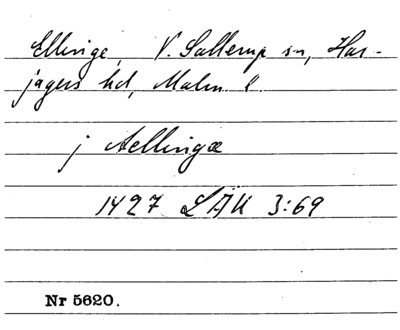 Ellinge, V. Sallerup sn, Har-
jagers hd, Malm. l.
j Aellingæ
1427 LÄU 3:69
Nr 5620.